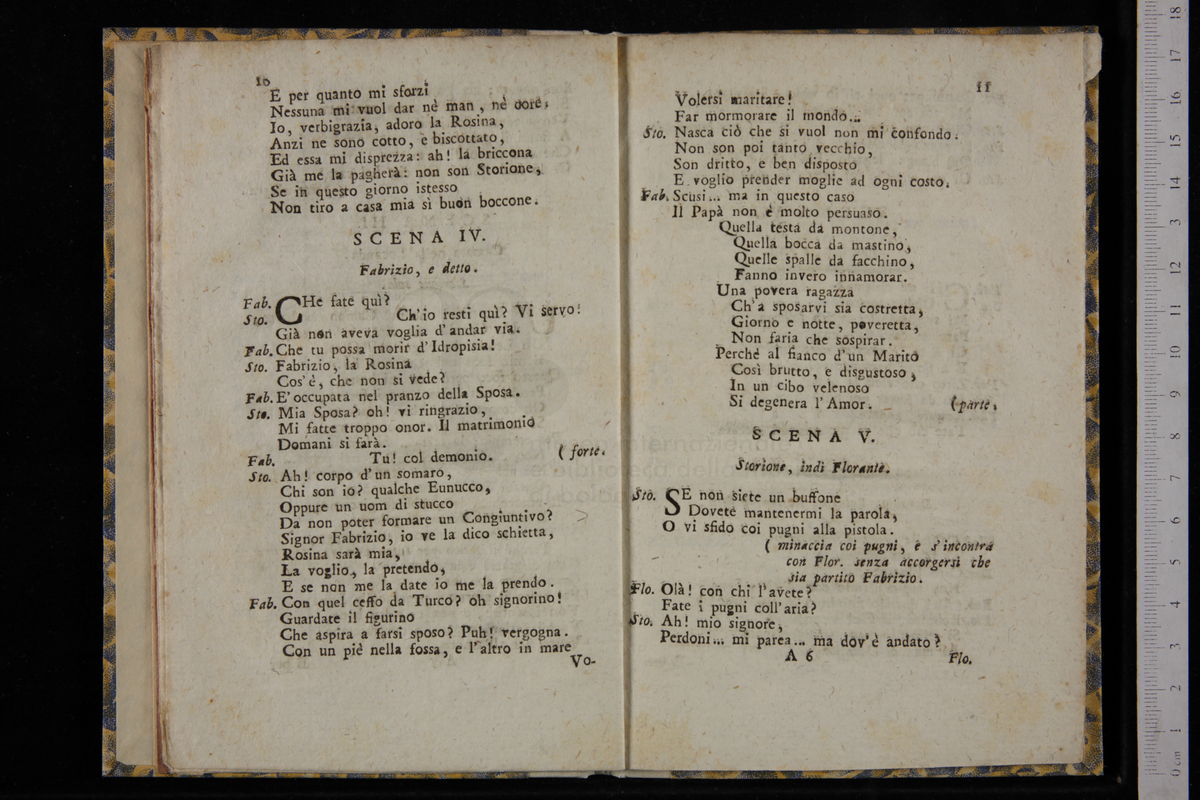 10
E per quanto mi sforzi
Nessuna mi vuol dar nè man, nè core;
Io, verbigrazia, adoro la Rosina,
Anzi ne sono cotto, e biscottato,
Ed essa mi disprezza: ah! la briccona
Già me la pagherà: non son Storione,
Se in questo giorno istesso
Non tiro a casa mia sì buon boccone.
SCENA IV.
Fabrizio, e detto.
Fab. CHe fate quì?
Sto. Ch'io resti quì? Vi servo!
Già non aveva voglia d'andar via.
Fab. Che tu possa morir d'Idropisia!
Sto. Fabrizio, la Rosina
Cos'è, che non si vede?
Fab. E' occupata nel pranzo della Sposa.
Sto. Mia Sposa? oh! vi ringrazio,
Mi fatte troppo onor. Il matrimonio
Domani si farà.
Fab. Tu! col demonio. (forte.
Sto. Ah! corpo d'un somaro,
Chi son io? qualche Eunucco,
Oppure un uom di stucco
Da non poter formare un Congiuntivo?
Signor Fabrizio, io ve la dico schietta,
Rosina sarà mia,
La voglio, la pretendo,
E se non me la date io me la prendo.
Fab. Con quel ceffo da Turco? oh signorino!
Guardate il figurino
Che aspira a farsi sposo? Puh! vergogna.
Con un piè nella fossa, e l'altro in mare
Vo-
11
Volersi maritare!
Far mormorare il mondo...
Sto. Nasca ciò che si vuol non mi confondo.
Non son poi tanto vecchio,
Son dritto, e ben disposto
E voglio prender moglie ad ogni costo.
Fab. Scusi... ma in questo caso
Il Papà non è molto persuaso.
Quella testa da montone,
Quella bocca da mastino,
Quelle spalle da facchino,
Fanno invero innamorar.
Una povera ragazza
Ch'a sposarvi sia costretta,
Giorno e notte, poveretta,
Non faria che sospirar.
Perchè al fianco d'un Marito
Così brutto, e disgustoso,
In un cibo velenoso
Si degenera l'Amor. (parte.
SCENA V.
Storione, indi Florante.
Sto. SE non siete un buffone
Dovete mantenermi la parola,
O vi sfido coi pugni alla pistola.
( minaccia coi pugni, e s'incontra
con Flor. senza accorgersi che
sia partito Fabrizio.
Flo. Olà! con chi l'avete?
Fate i pugni coll'aria?
Sto. Ah! mio signore,
Perdoni... mi parea... ma dov'è andato?
A 6 Flo.
0 cm 1 2 3 4 5 6 7 8 9 10 11 12 13 14 15 16 17 18